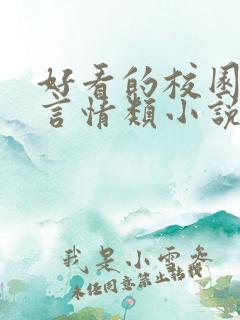 好看的校园
言情类小說
我是小雪参
未经同意禁止转载